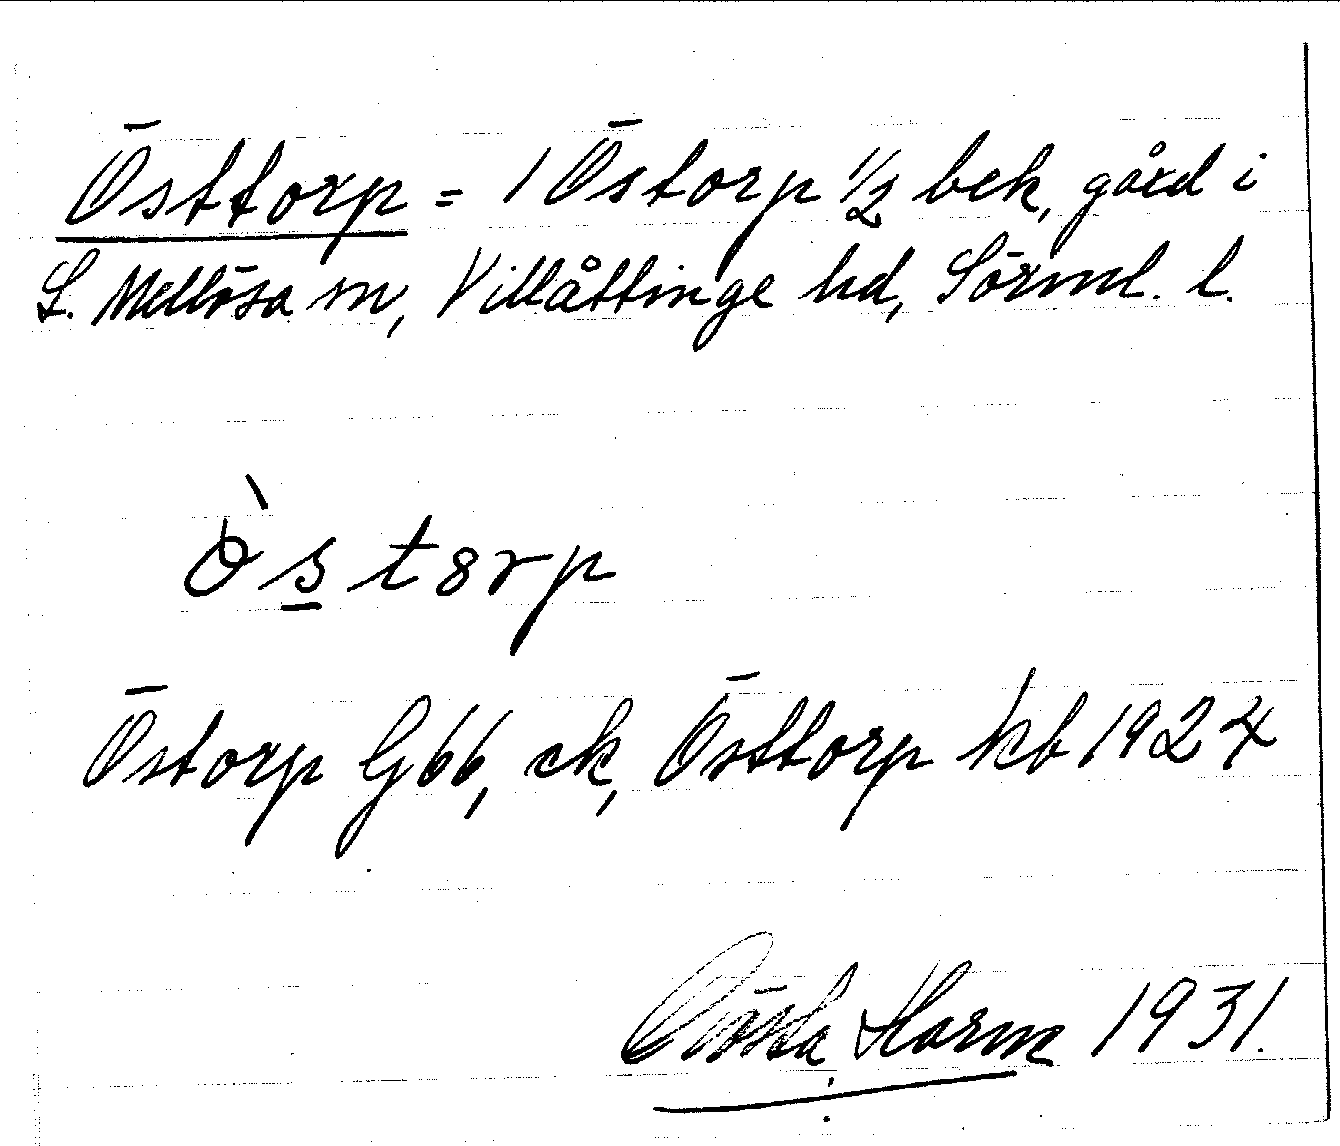 Östtorp = 1 Östorp 1/2 bek, gård i
S. Mellösa sn, Villåttinge hd, Sörml. l.
Östorp G66, ek, Östtorp kb 1924
Gösta Harm 1931.